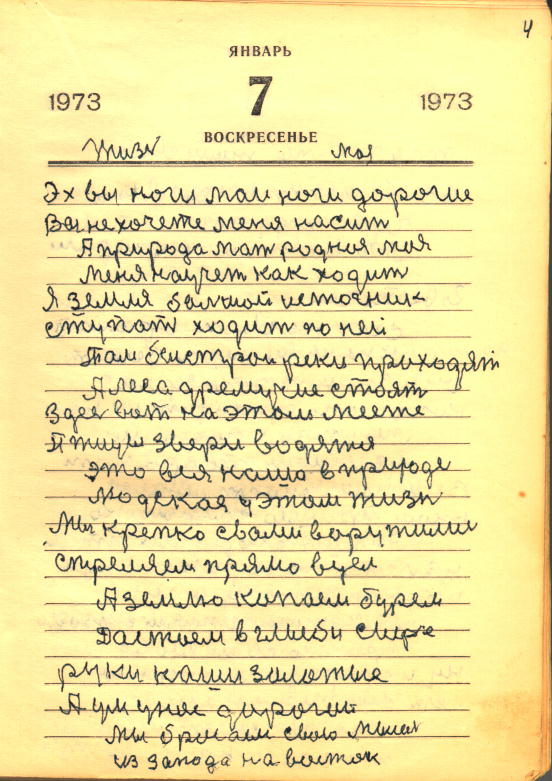 4
ЯНВАРЬ
1973 7 1973
ВОСКРЕСЕНЬЕ
Жизń моя
Эх вы ноги маи ноги дорогие
Вы не хочете меня насит
А природа мат родная моя
меня научет как ходит
Я земля балшой источник
ступат ходит по ней
Там быстрои реки приходят
А леса дремучие стоят
Здес вот на этом месте
Птицы звери водятся
это вся нашо в природе
Людская у этом жизн
Мы крепко свами варужили
стреляем прямо вцел
А землю копаем бурем
Дастоем в глыби
руки наши залотые
А ум у нас дорогой
Мы бросаем свою
из запода на васток